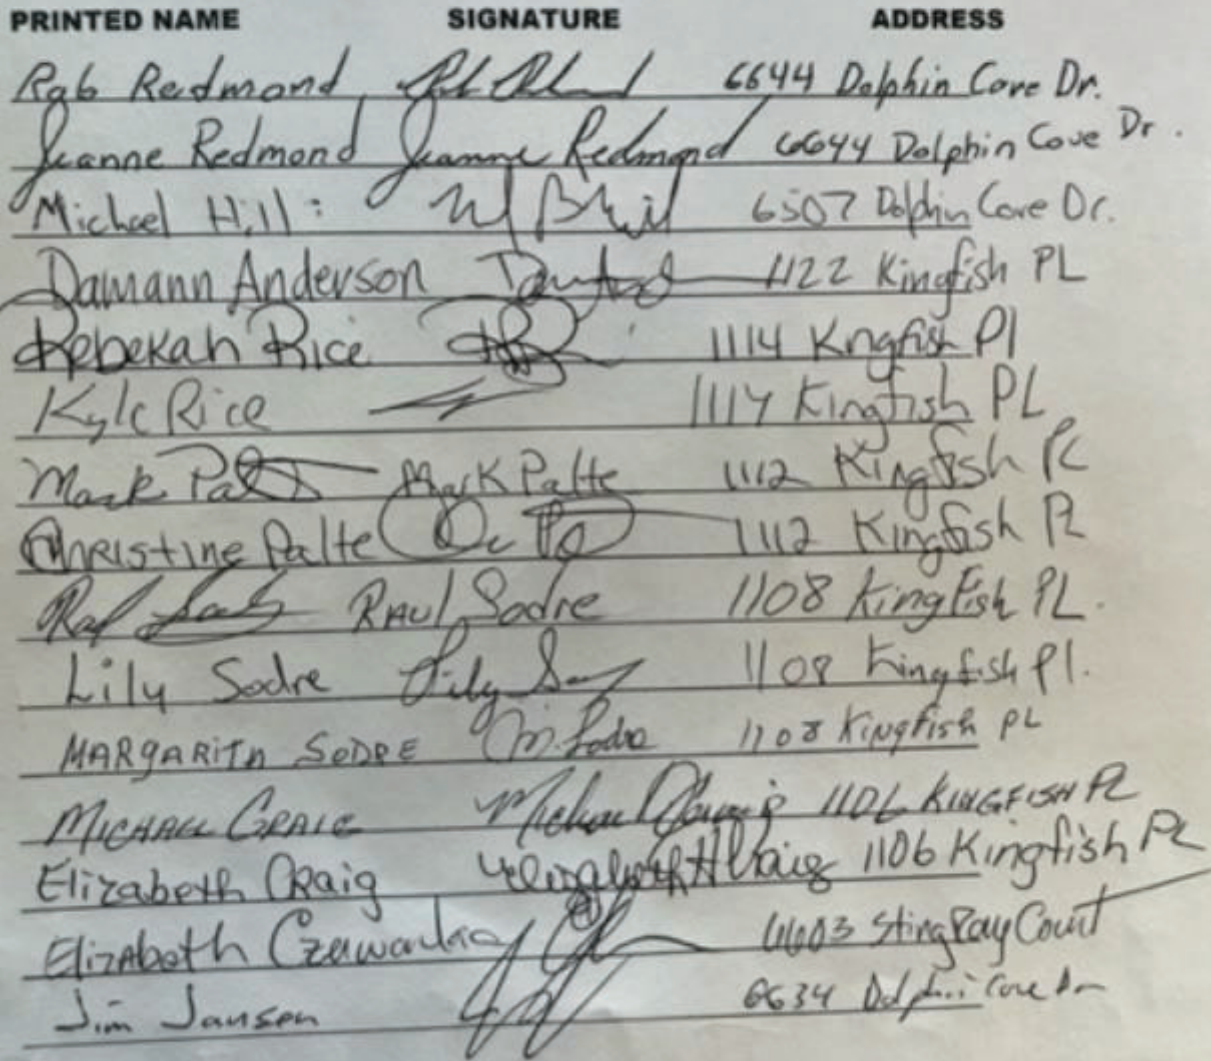 PRINTED NAME SIGNATURE ADDRESS
Rob Redmond 6644 Dolphin Cove Dr.
Jeanne Redmond Jeanne Redmond 6644 Dolphin Cove Dr.
Michael Hill 6507 Dolphin Cove Dr.
Damann Anderson 1122 Kingfish PL
Rebekah Rice 1114 Kngfish Pl
Kyle Rice 1114 Kingfish PL
Mark Mark Palte 1112 Kingfish PL
Christine Palte 1112 Kingfish PL
RAUL Sodre 1108 KingFish PL.
Lily Sodre Lily 1108 Kingfish Pl.
MARGARITA SODRE M. Sodre 1108 Kingfish PL
MICHAEL CRAIG Michael 1106 KINGFISH PL
Elizabeth CRaig Elizabeth H Craig 1106 Kingfish PL
Elizabeth 6603 StingRay Court
Jim Jansen 6634 Dolphin Cove Dr